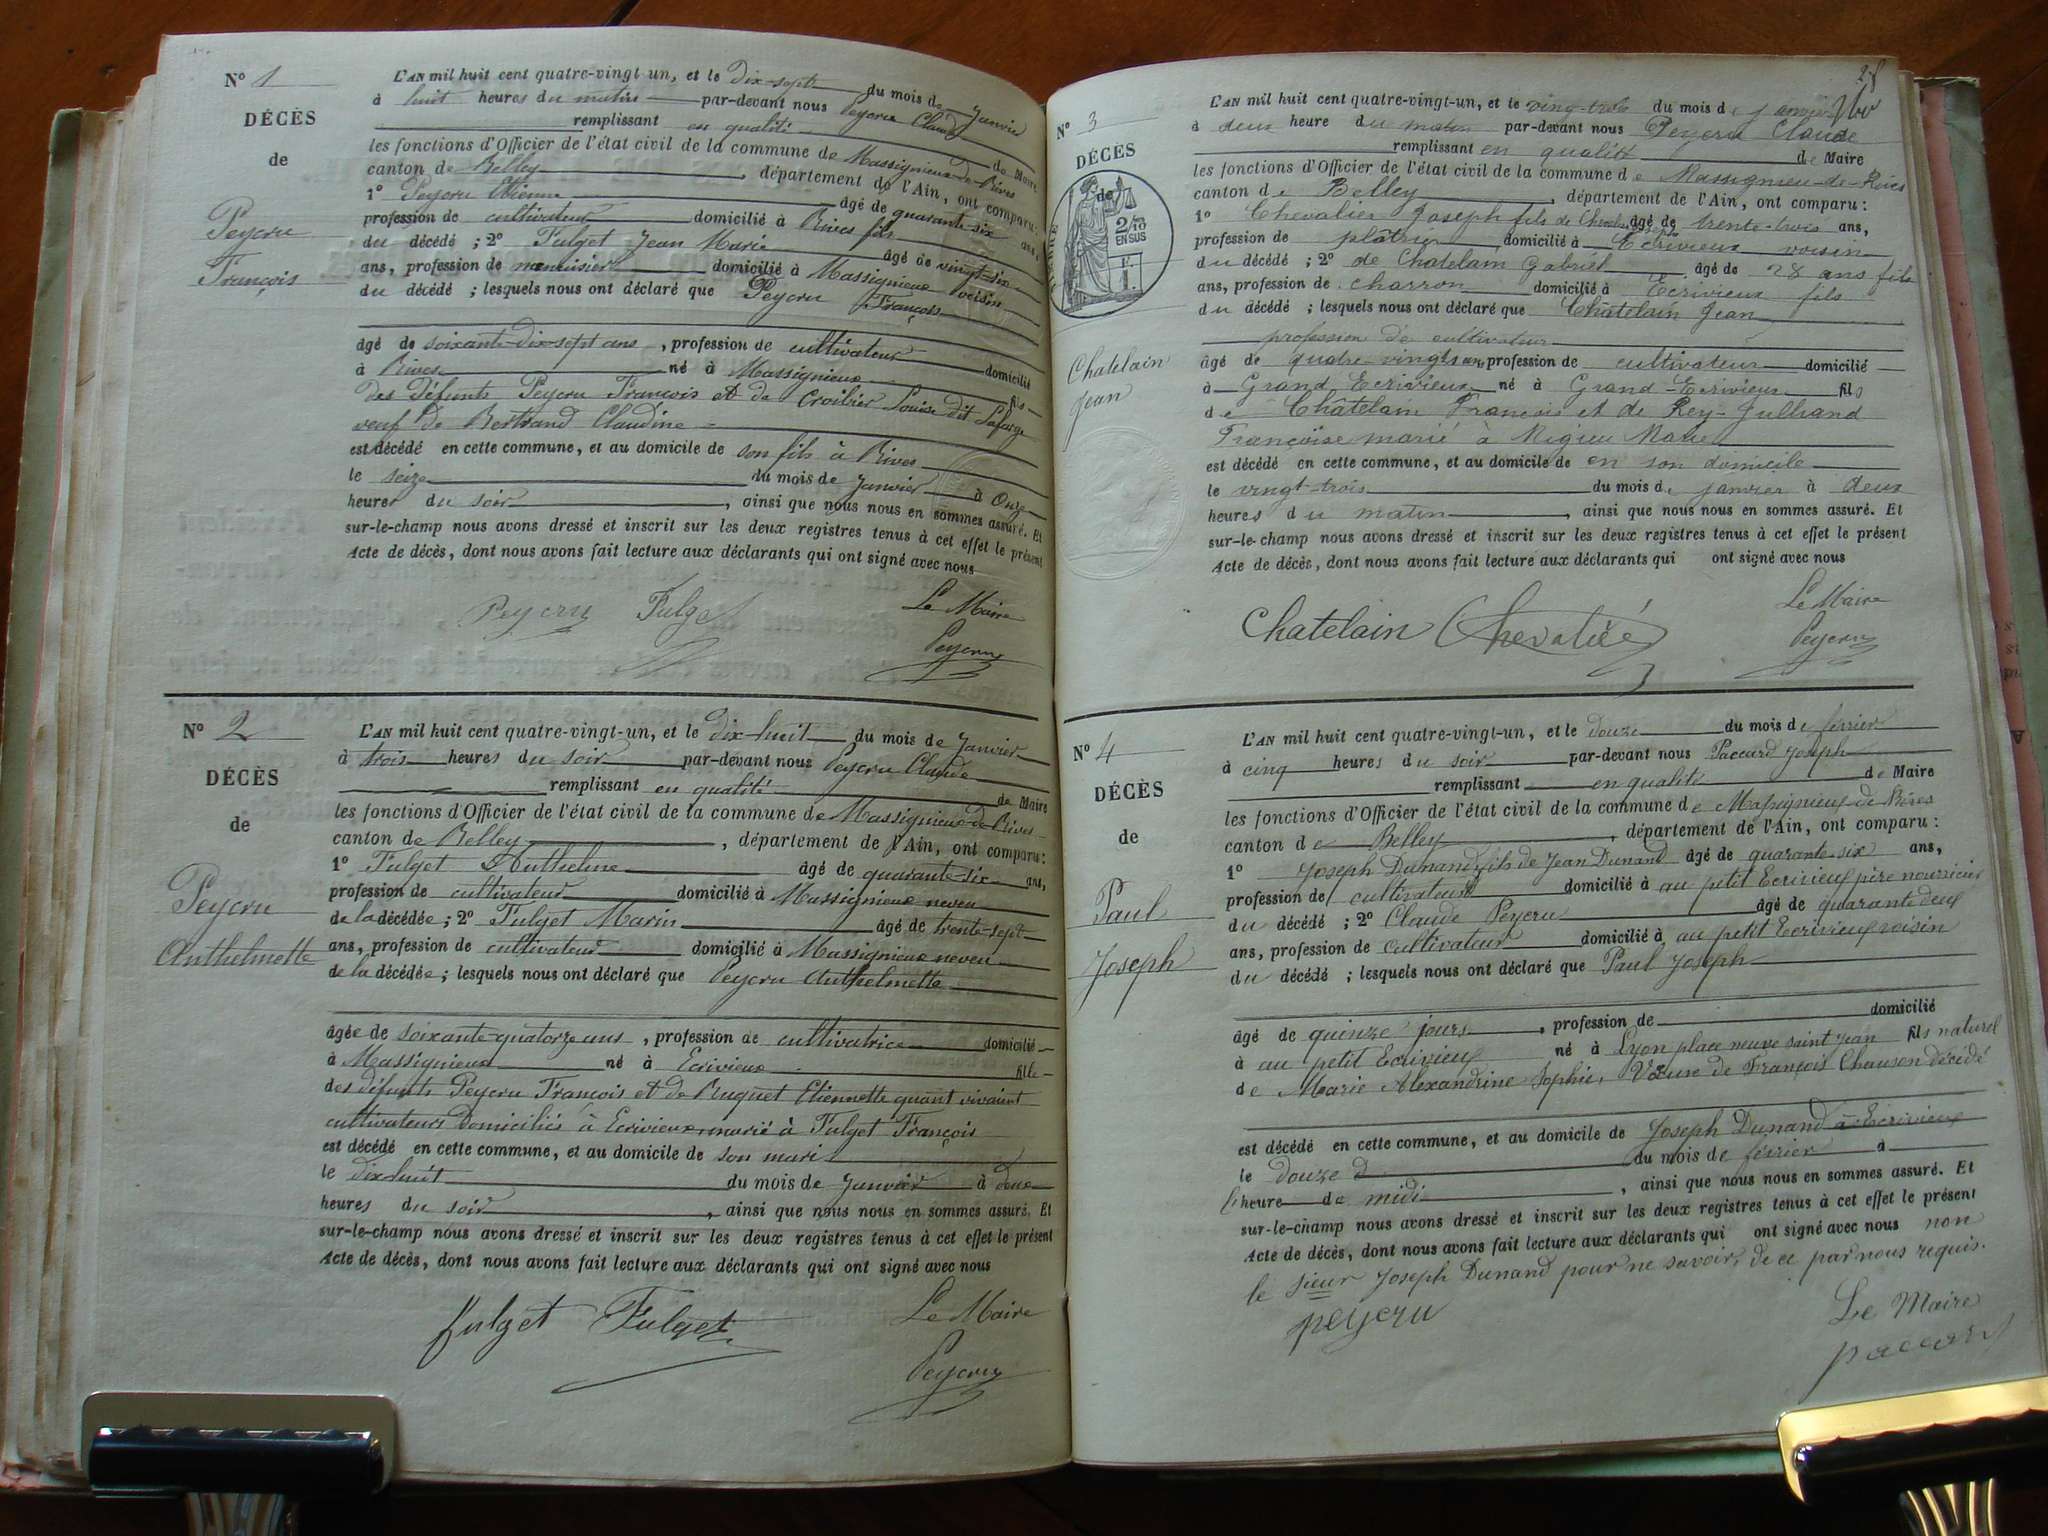 Nº 1
DÉCÈS
de
Peycru
François
L'AN mil huit cent quatre-vingt un, et le dix-sept du mois de Janvier
à huit heures du matin par-devant nous Peycru Claude
remplissant en qualité de Maire
les fonctions d'Officier de l'état civil de la commune de Massignieu-de-Rives
canton de Belley, département de l'Ain, ont comparu :
1º Peycru Etienne âgé de quarante-six ans,
profession de cultivateur domicilié à Rives fils
du décédé ; 2º Fulget Jean Marie âgé de vingt-six
ans, profession de menuisier domicilié à Massignieu voisin
du décédé ; lesquels nous ont déclaré que Peycru François
âgé de soixante-dix-sept ans, profession de cultivateur domicilié
à Rives né à Massignieu fils
des défunts Peycru François et de Croibier Louise dit Lafarge
veuf de Bertrand Claudine
est décédé en cette commune, et au domicile de son fils à Rives
le seize du mois de Janvier à Onze
heures du soir, ainsi que nous nous en sommes assuré. Et
sur-le-champ nous avons dressé et inscrit sur les deux registres tenus à cet effet le présent
Acte de décès, dont nous avons fait lecture aux déclarants qui ont signé avec nous
Peycru Fulget Le Maire
Peycru
Nº 2
DÉCÈS
de
Peycru
Anthelmette
L'AN mil huit cent quatre-vingt-un, et le dix-huit du mois de Janvier
à trois heures du soir par-devant nous Peycru Claude
remplissant en qualité de Maire
les fonctions d'Officier de l'état civil de la commune de Massignieu-de-Rives
canton de Belley, département de l'Ain, ont comparu :
1º Fulget Anthelme âgé de quarante-six ans,
profession de cultivateur domicilié à Massignieu neveu
de la décédée ; 2º Fulget Marin âgé de trente-sept
ans, profession de cultivateur domicilié à Massignieu neveu
de la décédée ; lesquels nous ont déclaré que Peycru Anthelmette
âgée de soixante-quatorze ans, profession de cultivatrice domicilié
à Massignieu né à Ecrivieux fille
des défunts Peycru François et de Etiennette quant vivaient
cultivateurs domiciliés à Ecrivieux marié à Fulget François
est décédé en cette commune, et au domicile de son mari
le dix-huit du mois de Janvier à deux
heures du soir, ainsi que nous nous en sommes assuré. Et
sur-le-champ nous avons dressé et inscrit sur les deux registres tenus à cet effet le présent
Acte de décès, dont nous avons fait lecture aux déclarants qui ont signé avec nous
fulget Fulget Le Maire
Peycru
28
Nº 3
DÉCÈS
de
2/10
EN SUS
Chatelain
Jean
L'AN mil huit cent quatre-vingt-un, et le vingt-trois du mois de janvier
à deux heure du matin par-devant nous Peycru Claude
remplissant en qualité de Maire
les fonctions d'Officier de l'état civil de la commune de Massignieu-de-Rives
canton de Belley, département de l'Ain, ont comparu :
1º Chevalier Joseph fils de âgé de trente-trois ans,
profession de plâtrier domicilié à Ecrivieux voisin
du décédé ; 2º de Chatelain Gabriel âgé de 28 ans fils
ans, profession de charron domicilié à Ecrivieux fils
du décédé ; lesquels nous ont déclaré que Châtelain Jean
profession de cultivateur
âgé de quatre-vingts ans, profession de cultivateur domicilié
à Grand Ecrivieux né à Grand-Ecrivieux fils
de Châtelain François et de Rey-Gulliand
Françoise marié à Migieu Marie
est décédé en cette commune, et au domicile de en son domicile
le vingt-trois du mois de janvier à deux
heures du matin, ainsi que nous nous en sommes assuré. Et
sur-le-champ nous avons dressé et inscrit sur les deux registres tenus à cet effet le présent
Acte de décès, dont nous avons fait lecture aux déclarants qui ont signé avec nous
Chatelain Chevalié Le Maire
Peycru
Nº 4
DÉCÈS
de
Paul
Joseph
L'AN mil huit cent quatre-vingt-un, et le douze du mois de février
à cinq heures du soir par-devant nous Paccard Joseph
remplissant en qualité de Maire
les fonctions d'Officier de l'état civil de la commune de Massignieu-de-Rives
canton de Belley, département de l'Ain, ont comparu :
1º Joseph Dunand fils de Jean Dunand âgé de quarante-six ans,
profession de cultivateur domicilié à au petit Ecrivieux père nourricier
du décédé ; 2º Claude Peycru âgé de quarante deux
ans, profession de cultivateur domicilié à au petit Ecrivieux voisin
du décédé ; lesquels nous ont déclaré que Paul Joseph
âgé de quinze jours, profession de domicilié
à au petit Ecrivieux né à Lyon place neuve saint Jean fils naturel
de Marie Alexandrine Sophie, Veuve de François Chauson décédé
est décédé en cette commune, et au domicile de Joseph Dunand à Ecrivieux
le douze du mois de février à
heure de midi, ainsi que nous nous en sommes assuré. Et
sur-le-champ nous avons dressé et inscrit sur les deux registres tenus à cet effet le présent
Acte de décès, dont nous avons fait lecture aux déclarants qui ont signé avec nous non
le sieur Joseph Dunand pour ne savoir, de ce par nous requis.
peycru Le Maire
paccard